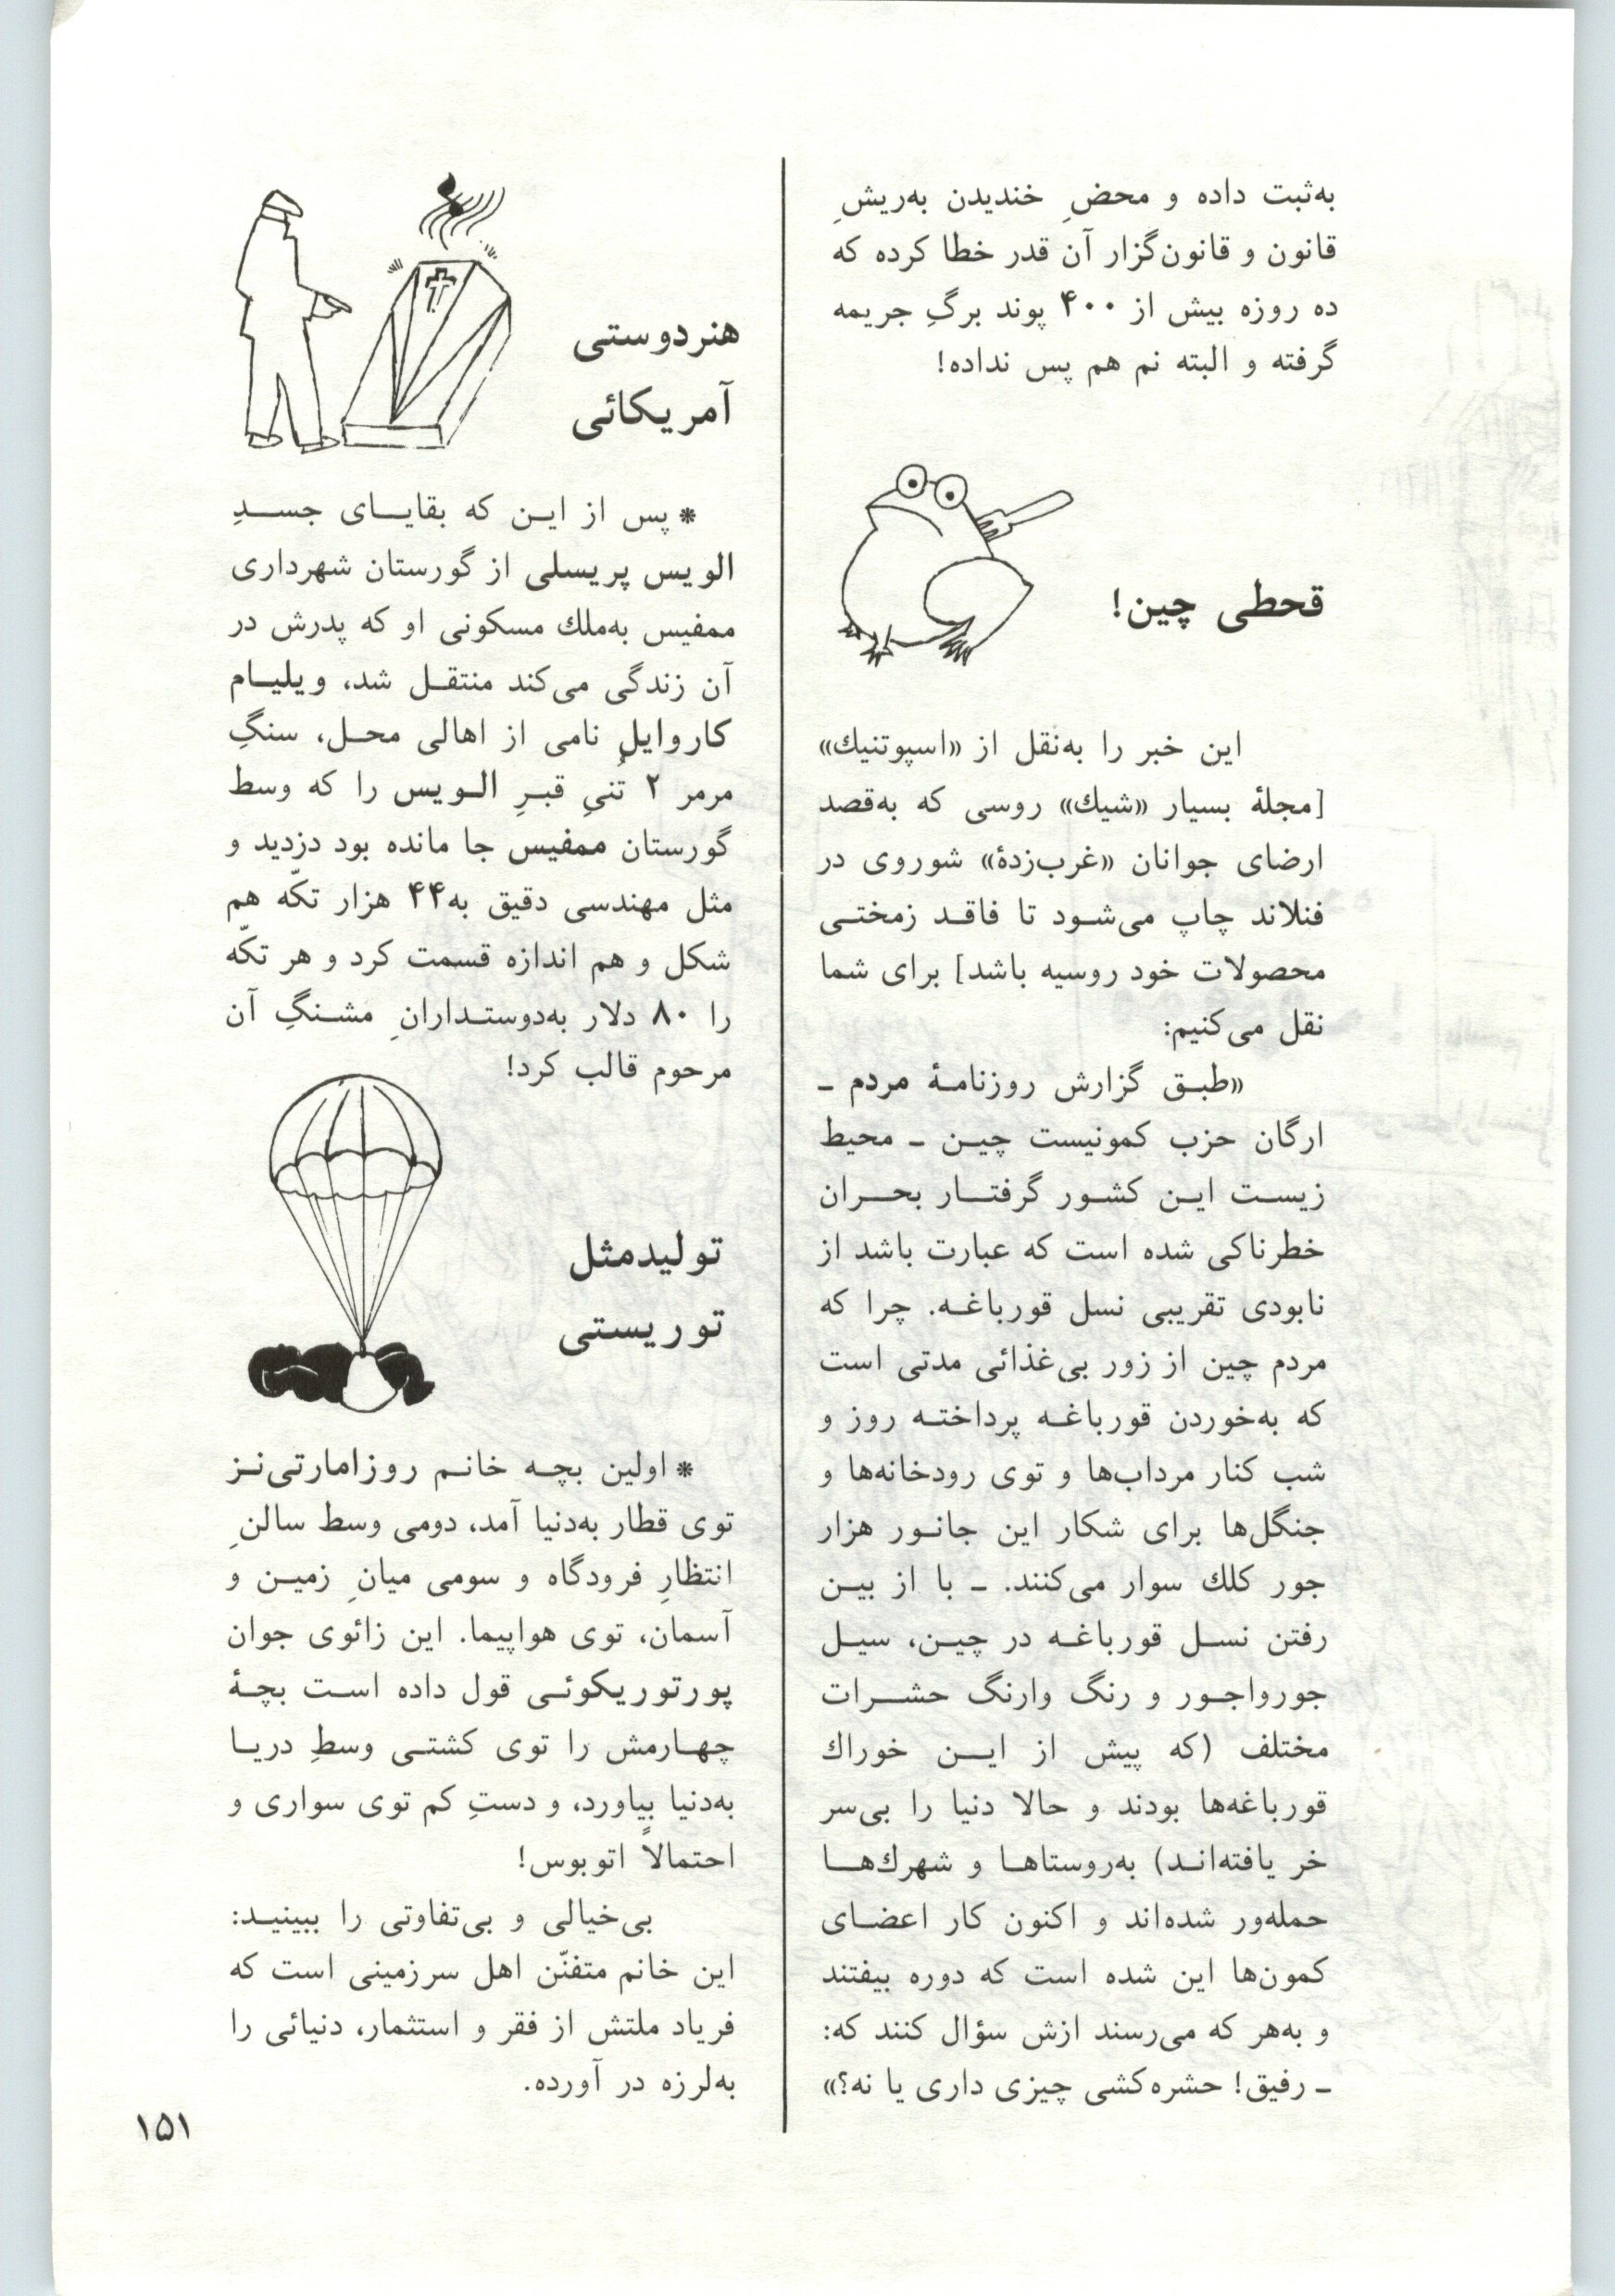 به‌ثبت داده و محضِ خندیدن به‌ریشِ
قانون و قانون‌گزار آن قدر خطا کرده که
ده روزه بیش از ۴۰۰ پوند برگِ جریمه
گرفته و البته نم هم پس نداده!
قحطی چین!
این خبر را به‌نقل از «اسپوتنیك»
[مجلهٔ بسیار «شیك» روسی که به‌قصد
ارضای جوانان «غرب‌زدهٔ» شوروی در
فنلاند چاپ می‌شود تا فاقد زمختی
محصولات خود روسیه باشد] برای شما
نقل می‌کنیم:
«طبق گزارش روزنامهٔ مردم ـ
ارگان حزب کمونیست چین ـ محیط
زیست این کشور گرفتار بحران
خطرناکی شده است که عبارت باشد از
نابودی تقریبی نسل قورباغه. چرا که
مردم چین از زور بی‌غذائی مدتی است
که به‌خوردن قورباغه پرداخته روز و
شب کنار مرداب‌ها و توی رودخانه‌ها و
جنگل‌ها برای شکار این جانور هزار
جور کلك سوار می‌کنند. ـ با از بین
رفتن نسل قورباغه در چین، سیل
جورواجور و رنگ وارنگ حشرات
مختلف (که پیش از این خوراك
قورباغه‌ها بودند و حالا دنیا را بی‌سر
خر یافته‌اند) به‌روستاها و شهرك‌ها
حمله‌ور شده‌اند و اکنون کار اعضای
کمون‌ها این شده است که دوره بیفتند
و به‌هر که می‌رسند ازش سؤال کنند که:
ـ رفیق! حشره‌کشی چیزی داری یا نه؟»
هنردوستی
آمریکائی
* پس از این که بقایای جسدِ
الویس پریسلی از گورستان شهرداری
ممفیس به‌ملك مسکونی او که پدرش در
آن زندگی می‌کند منتقل شد، ویلیام
کاروایل نامی از اهالی محل، سنگِ
مرمر ۲ تُنیِ قبرِ الویس را که وسط
گورستان ممفیس جا مانده بود دزدید و
مثل مهندسی دقیق به۴۴ هزار تکّه هم
شکل و هم اندازه قسمت کرد و هر تکّه
را ۸۰ دلار به‌دوستدارانِ مشنگِ آن
مرحوم قالب کرد!
تولیدمثل
توریستی
* اولین بچه خانم روزامارتی‌نز
توی قطار به‌دنیا آمد، دومی وسط سالنِ
انتظارِ فرودگاه و سومی میانِ زمین و
آسمان، توی هواپیما. این زائوی جوان
پورتوریکوئی قول داده است بچهٔ
چهارمش را توی کشتی وسطِ دریا
به‌دنیا بیاورد، و دستِ کم توی سواری و
احتمالاً اتوبوس!
بی‌خیالی و بی‌تفاوتی را ببینید:
این خانم متفنّن اهل سرزمینی است که
فریاد ملتش از فقر و استثمار، دنیائی را
به‌لرزه در آورده.
۱۵۱